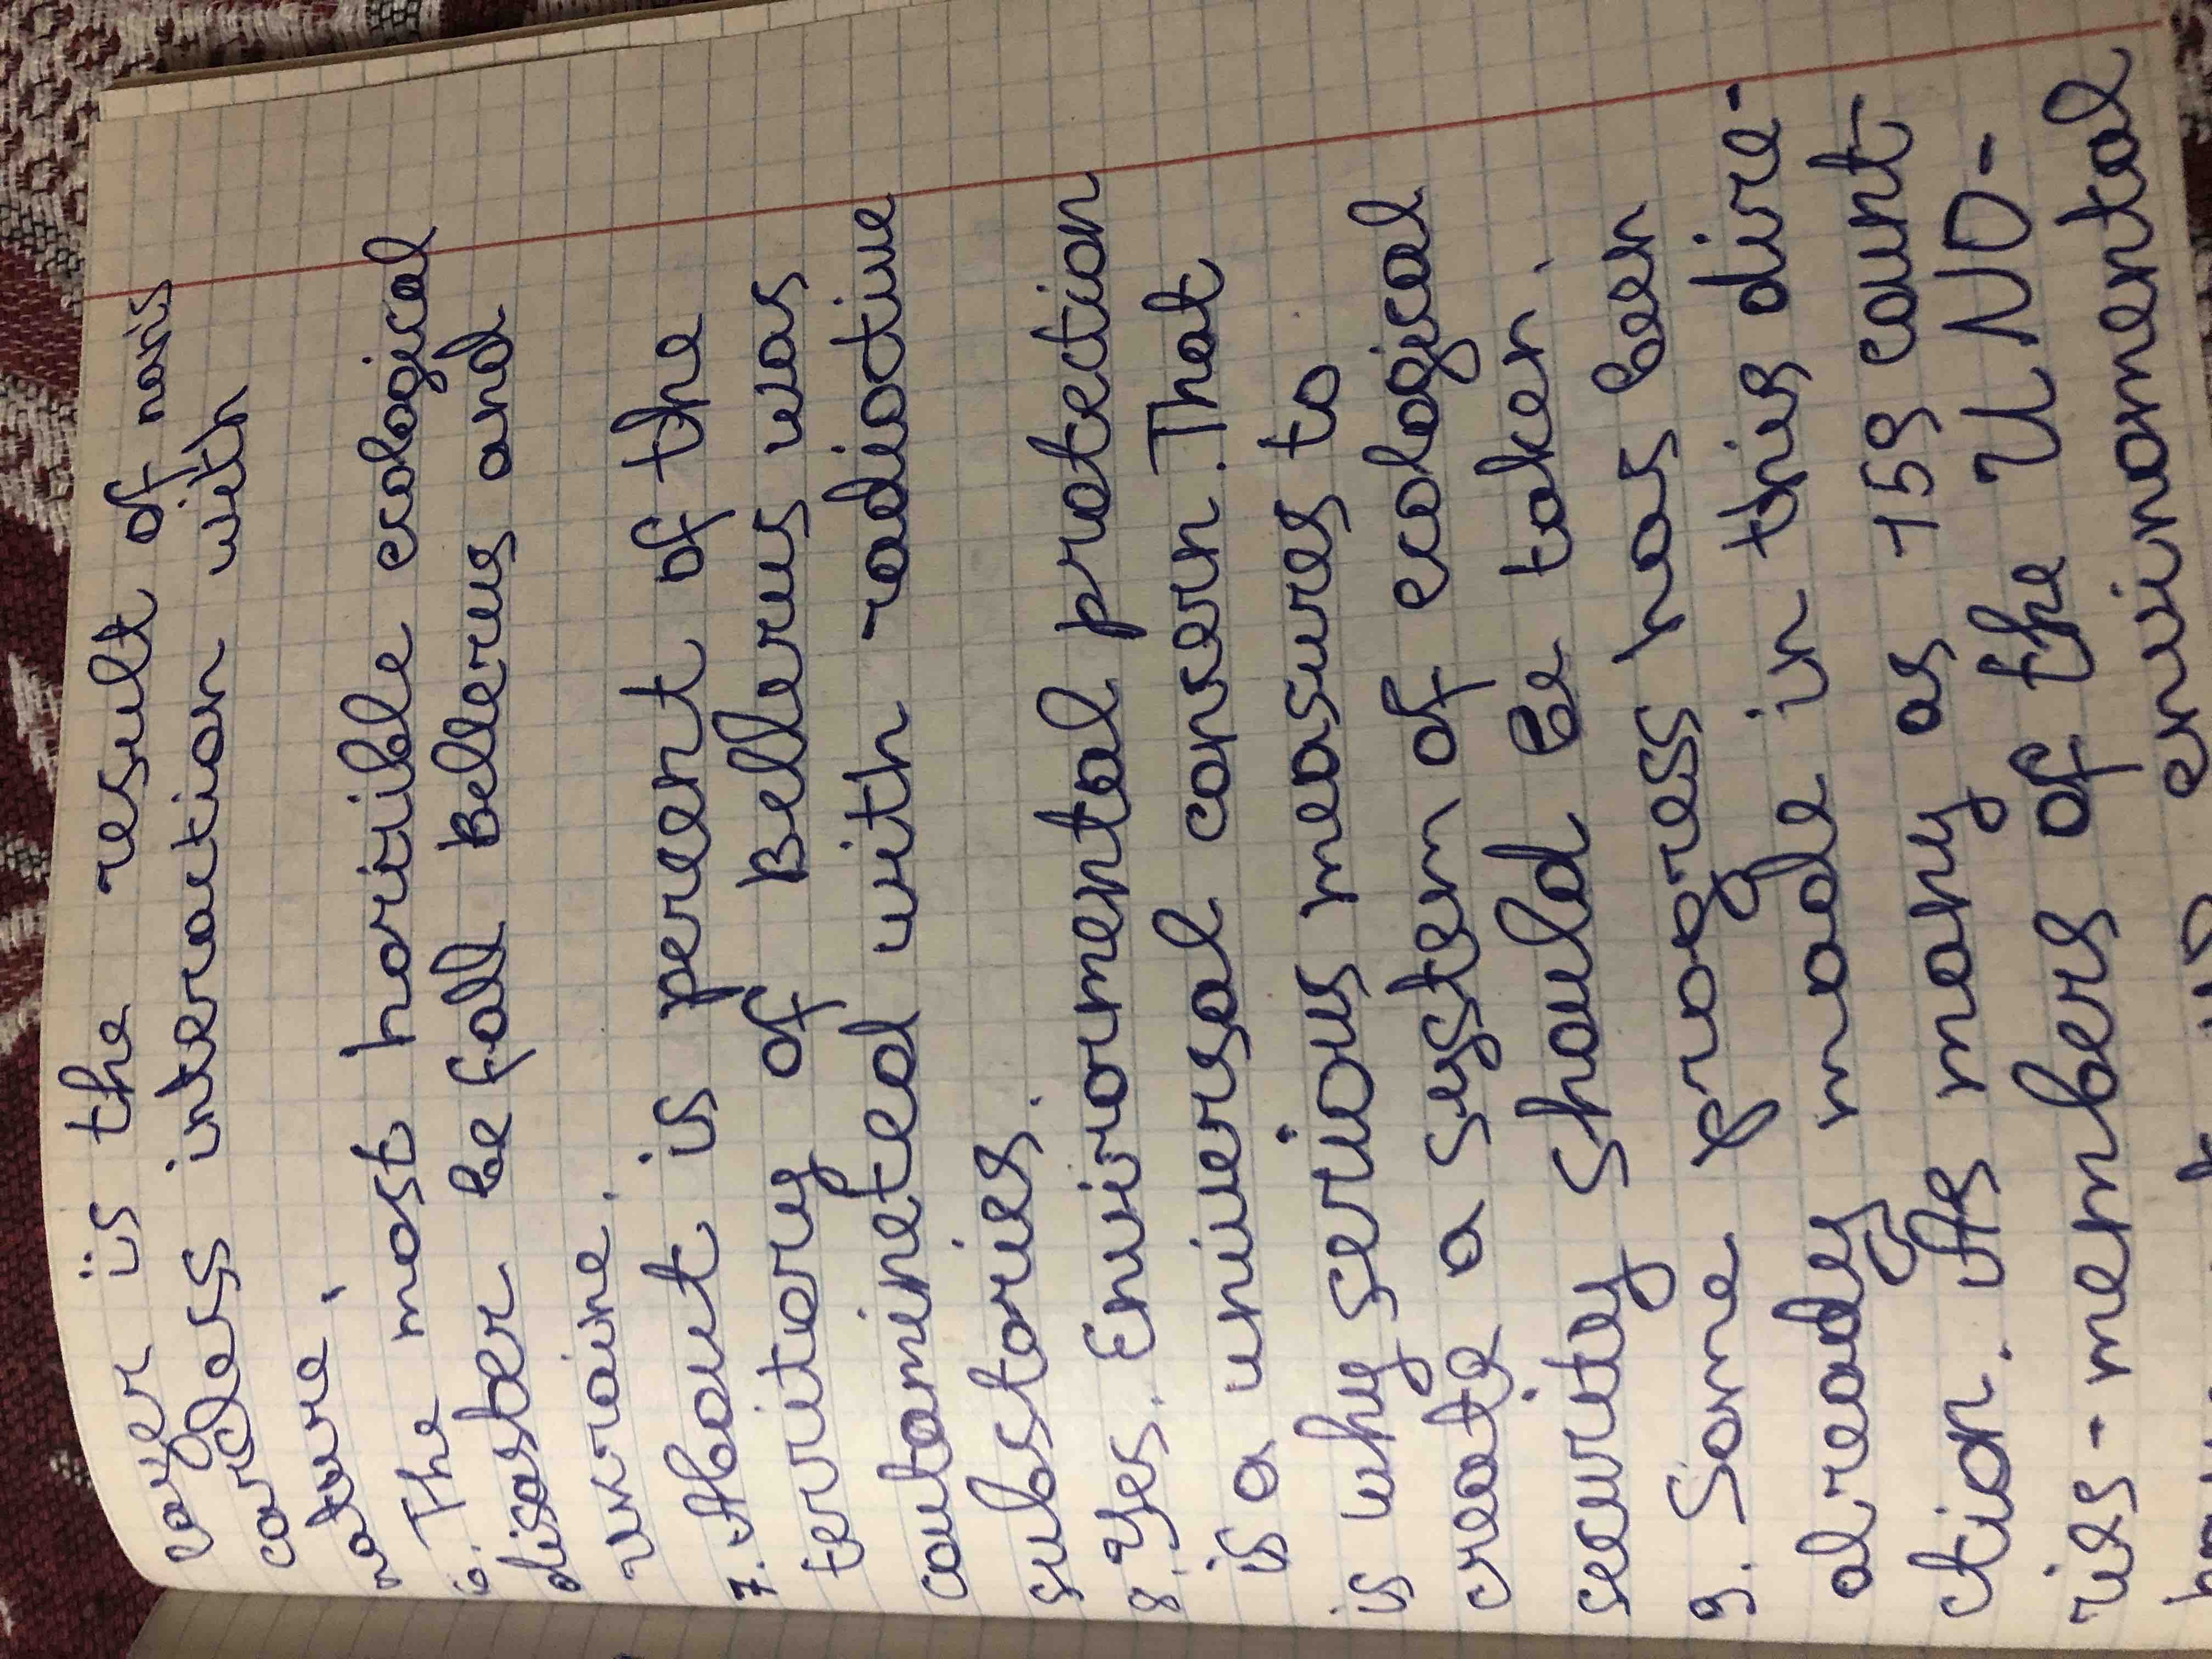 layer is the result of man's
careless interaction with
nature.
6. The most horrible ecological
disaster befall Bellerus and
Ukraine.
7. About is percent of the
territory of Bellerus was
contamineted with radiotive
substories.
8. Yes. Enviromental protection
is a universal consern. That
is why serious measures to
create a system of ecological
security should be taken.
9. Some progress has been
already made in this dire-
ction. As many as 159 count-
ries - members of the UNO -
environmental